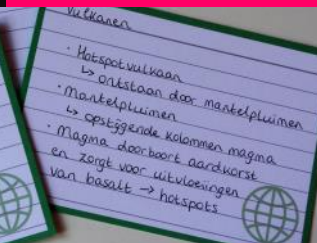 Vulkanen
· Hotspotvulkaan
↳ ontstaan door mantelpluimen
· Mantelpluimen
↳ opstijgende kolommen magma
· Magma doorboort aardkorst
en zorgt voor uitvloeiingen
van basalt → hotspots